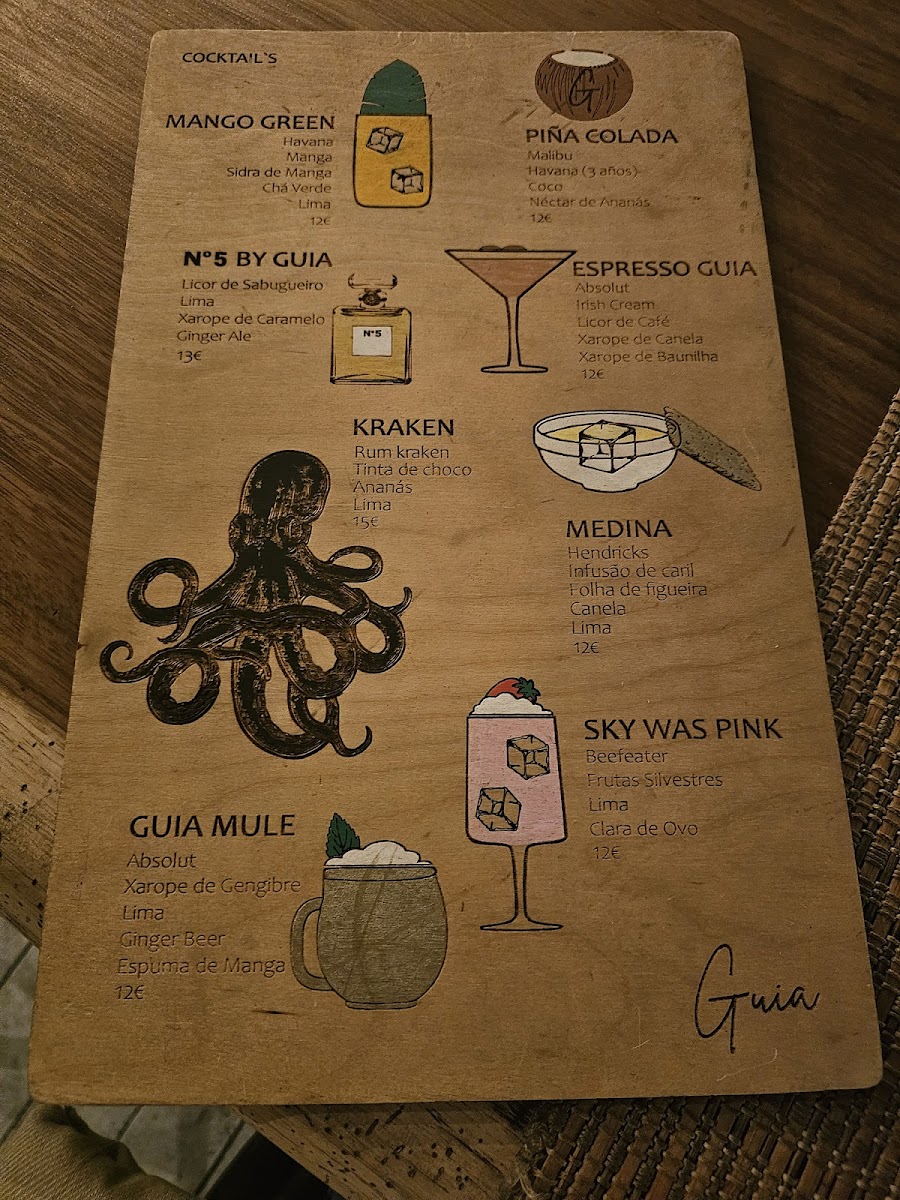 COCKTAIL`S
MANGO GREEN
Havana
Manga
Sidra de Manga
Chá Verde
Lima
12€
G
PIÑA COLADA
Malibu
Havana (3 años)
Coco
Néctar de Ananás
12€
Nº5 BY GUIA
Licor de Sabugueiro
Lima
Xarope de Caramelo
Ginger Ale
13€
Nº5
ESPRESSO GUIA
Absolut
Irish Cream
Licor de Café
Xarope de Canela
Xarope de Baunilha
12€
KRAKEN
Rum kraken
Tinta de choco
Ananás
Lima
15€
MEDINA
Hendricks
Infusão de caril
Folha de figueira
Canela
Lima
12€
SKY WAS PINK
Beefeater
Frutas Silvestres
Lima
Clara de Ovo
12€
GUIA MULE
Absolut
Xarope de Gengibre
Lima
Ginger Beer
Espuma de Manga
12€
Guia